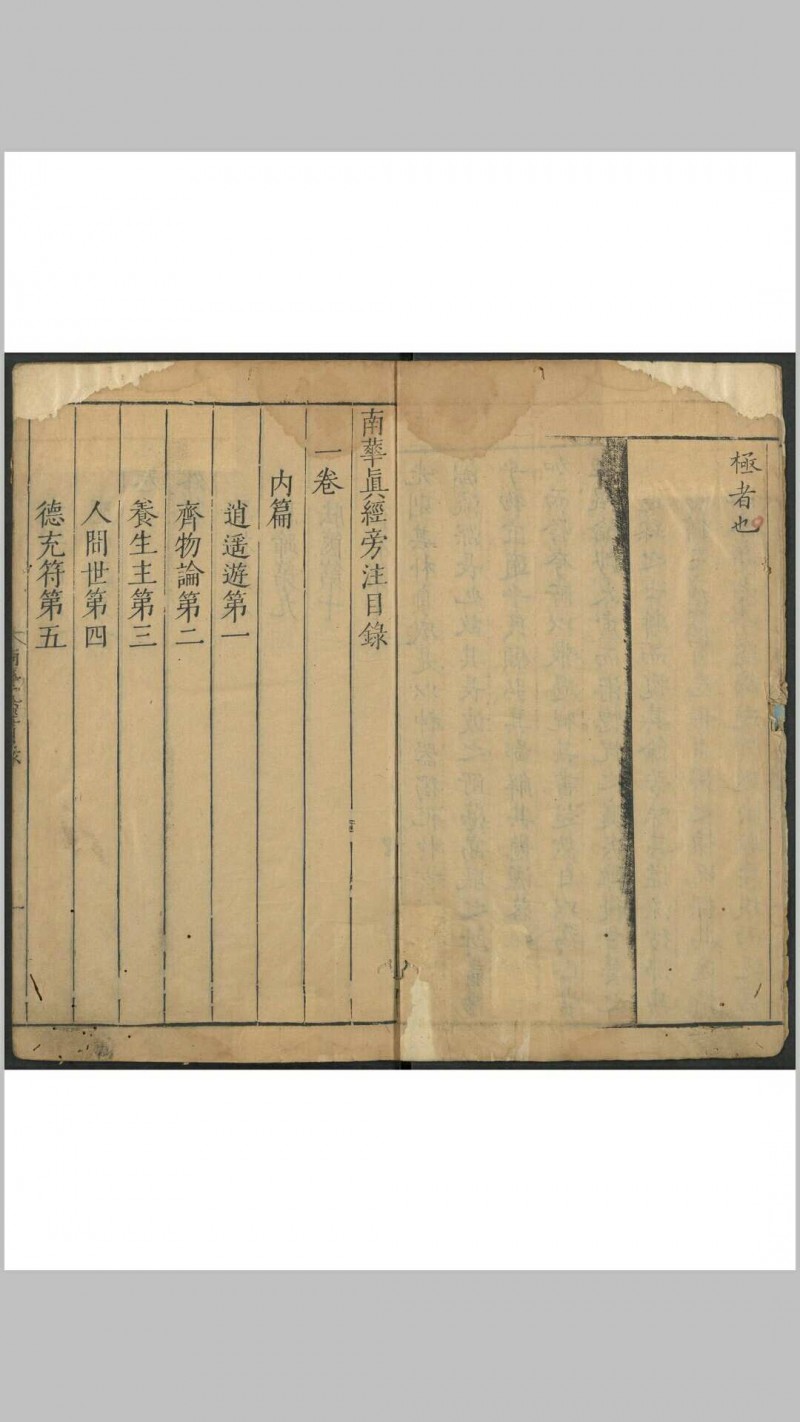 極者也
南華眞經旁注目錄
一卷
内篇
逍遥遊第一
齊物論第二
養生主第三
人間世第四
德充符第五